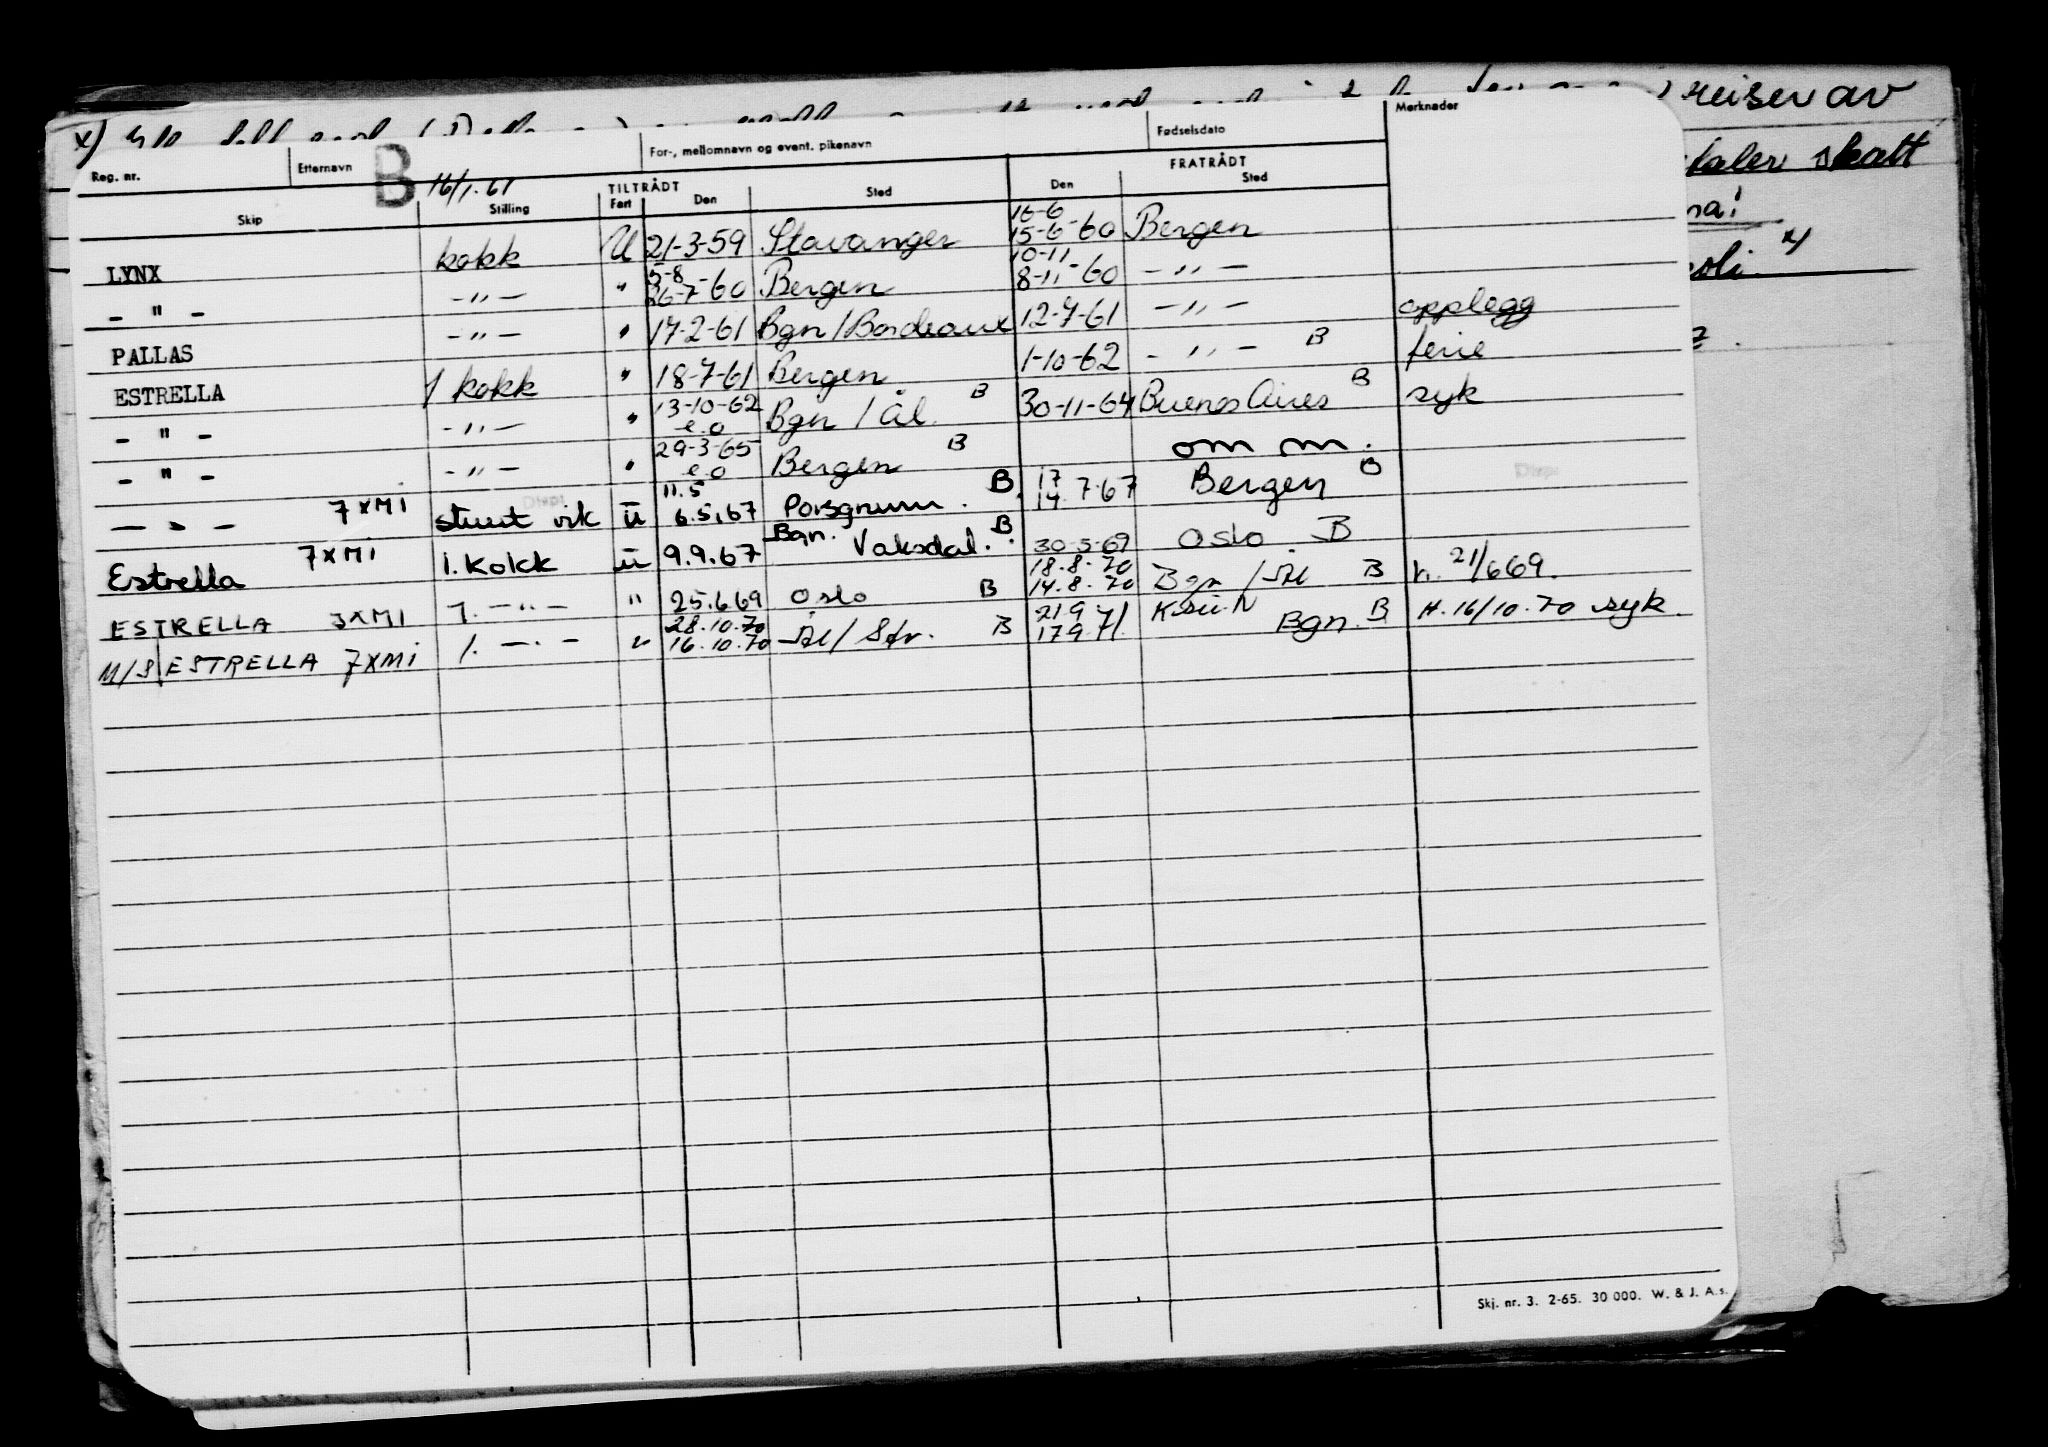 reiser av
skatt
Reg. nr. Etternavn B 16/1.61 For-, mellomnavn og event. pikenavn Fødselsdato Merknader
TILTRÅDT FRATRÅDT
Skip Stilling Fart Den Sted Den Sted
16-6
LYNX kokk U 21-3-59 Stavanger 15-6-60 Bergen
5-8 10-11
- " - - " - " 26-7-60 Bergen 8-11-60 - " -
PALLAS - " - " 17-2-61 Bgn / Bordeaux 12-7-61 - " - opplegg
ESTRELLA 1 kokk " 18-7-61 Bergen 1-10-62 - " - B ferie
- " - - " - " 13-10-62 e.o Bgn / Ål. B 30-11-64 Buenos Aires B syk
- " - - " - " 29-3-65 e.o Bergen B om m.
11.5 17
- " - 7XMI stuert vik u 6.5.67 Porsgrunn. B 14.7.67 Bergen B
Estrella 7XMI 1. Kokk u 9.9.67 Bgn. Vaksdal. B 30-5-69 Oslo. B
18.8.70
ESTRELLA 3XMI 1. - " - " 25.6.69 Oslo B 14.8.70 Bgn / Ål B h. 21/6 69.
28.10.70 21 9
M/S ESTRELLA 7XMI 1. - " - " 16.10.70 Ål / Sfv. B 17 9.71. Bgn. B H. 16/10.70 syk.
Skj. nr. 3. 2-65. 30 000. W. & J. A.s.